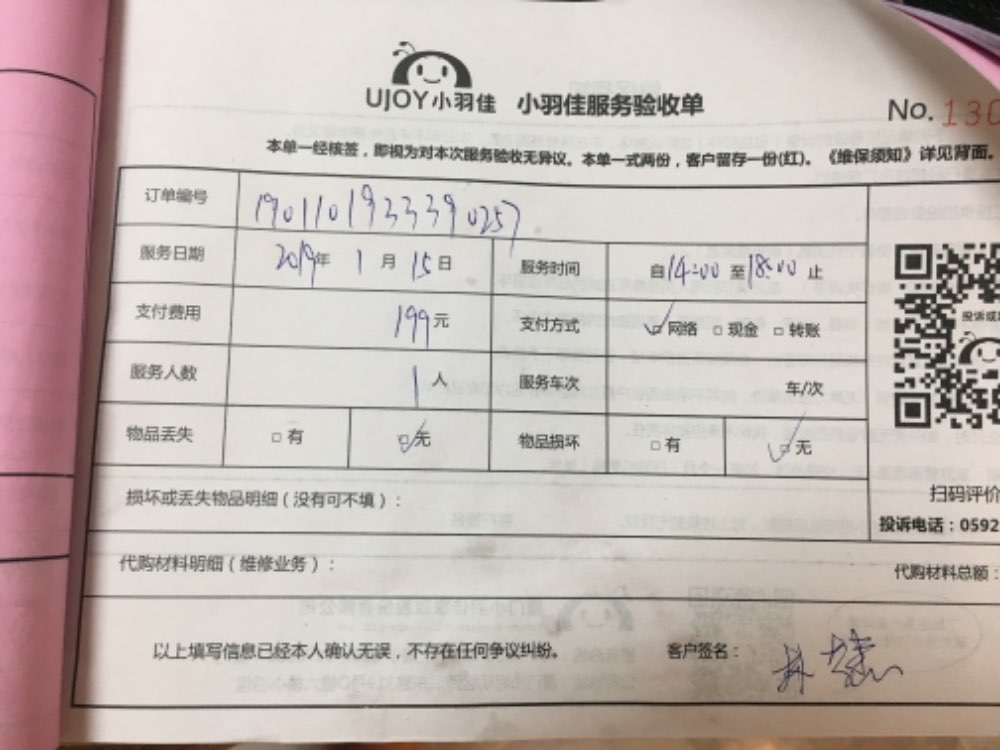 UJOY小羽佳 小羽佳服务验收单
No. 130
本单一经核签，即视为对本次服务验收无异议。本单一式两份，客户留存一份(红)。《维保须知》详见背面。
订单编号 1901101933390257
服务日期 2019年 1 月 15 日 服务时间 自14:00 至18:00 止
支付费用 199元 支付方式 ☑网络 □ 现金 □ 转账
服务人数 1 人 服务车次 车/次
物品丢失 □ 有 ☑无 物品损坏 □ 有 ☑无
投诉或
损坏或丢失物品明细（没有可不填）：
扫码评价
投诉电话：0592
代购材料明细（维修业务）：
代购材料总额：
以上填写信息已经本人确认无误，不存在任何争议纠纷。 客户签名：